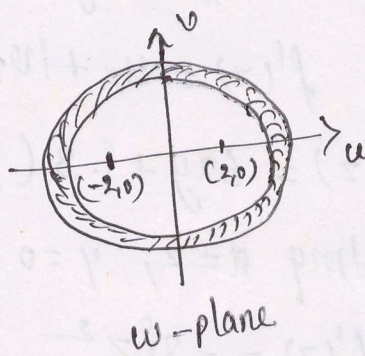 v
u
(-2,0) (2,0)
w-plane